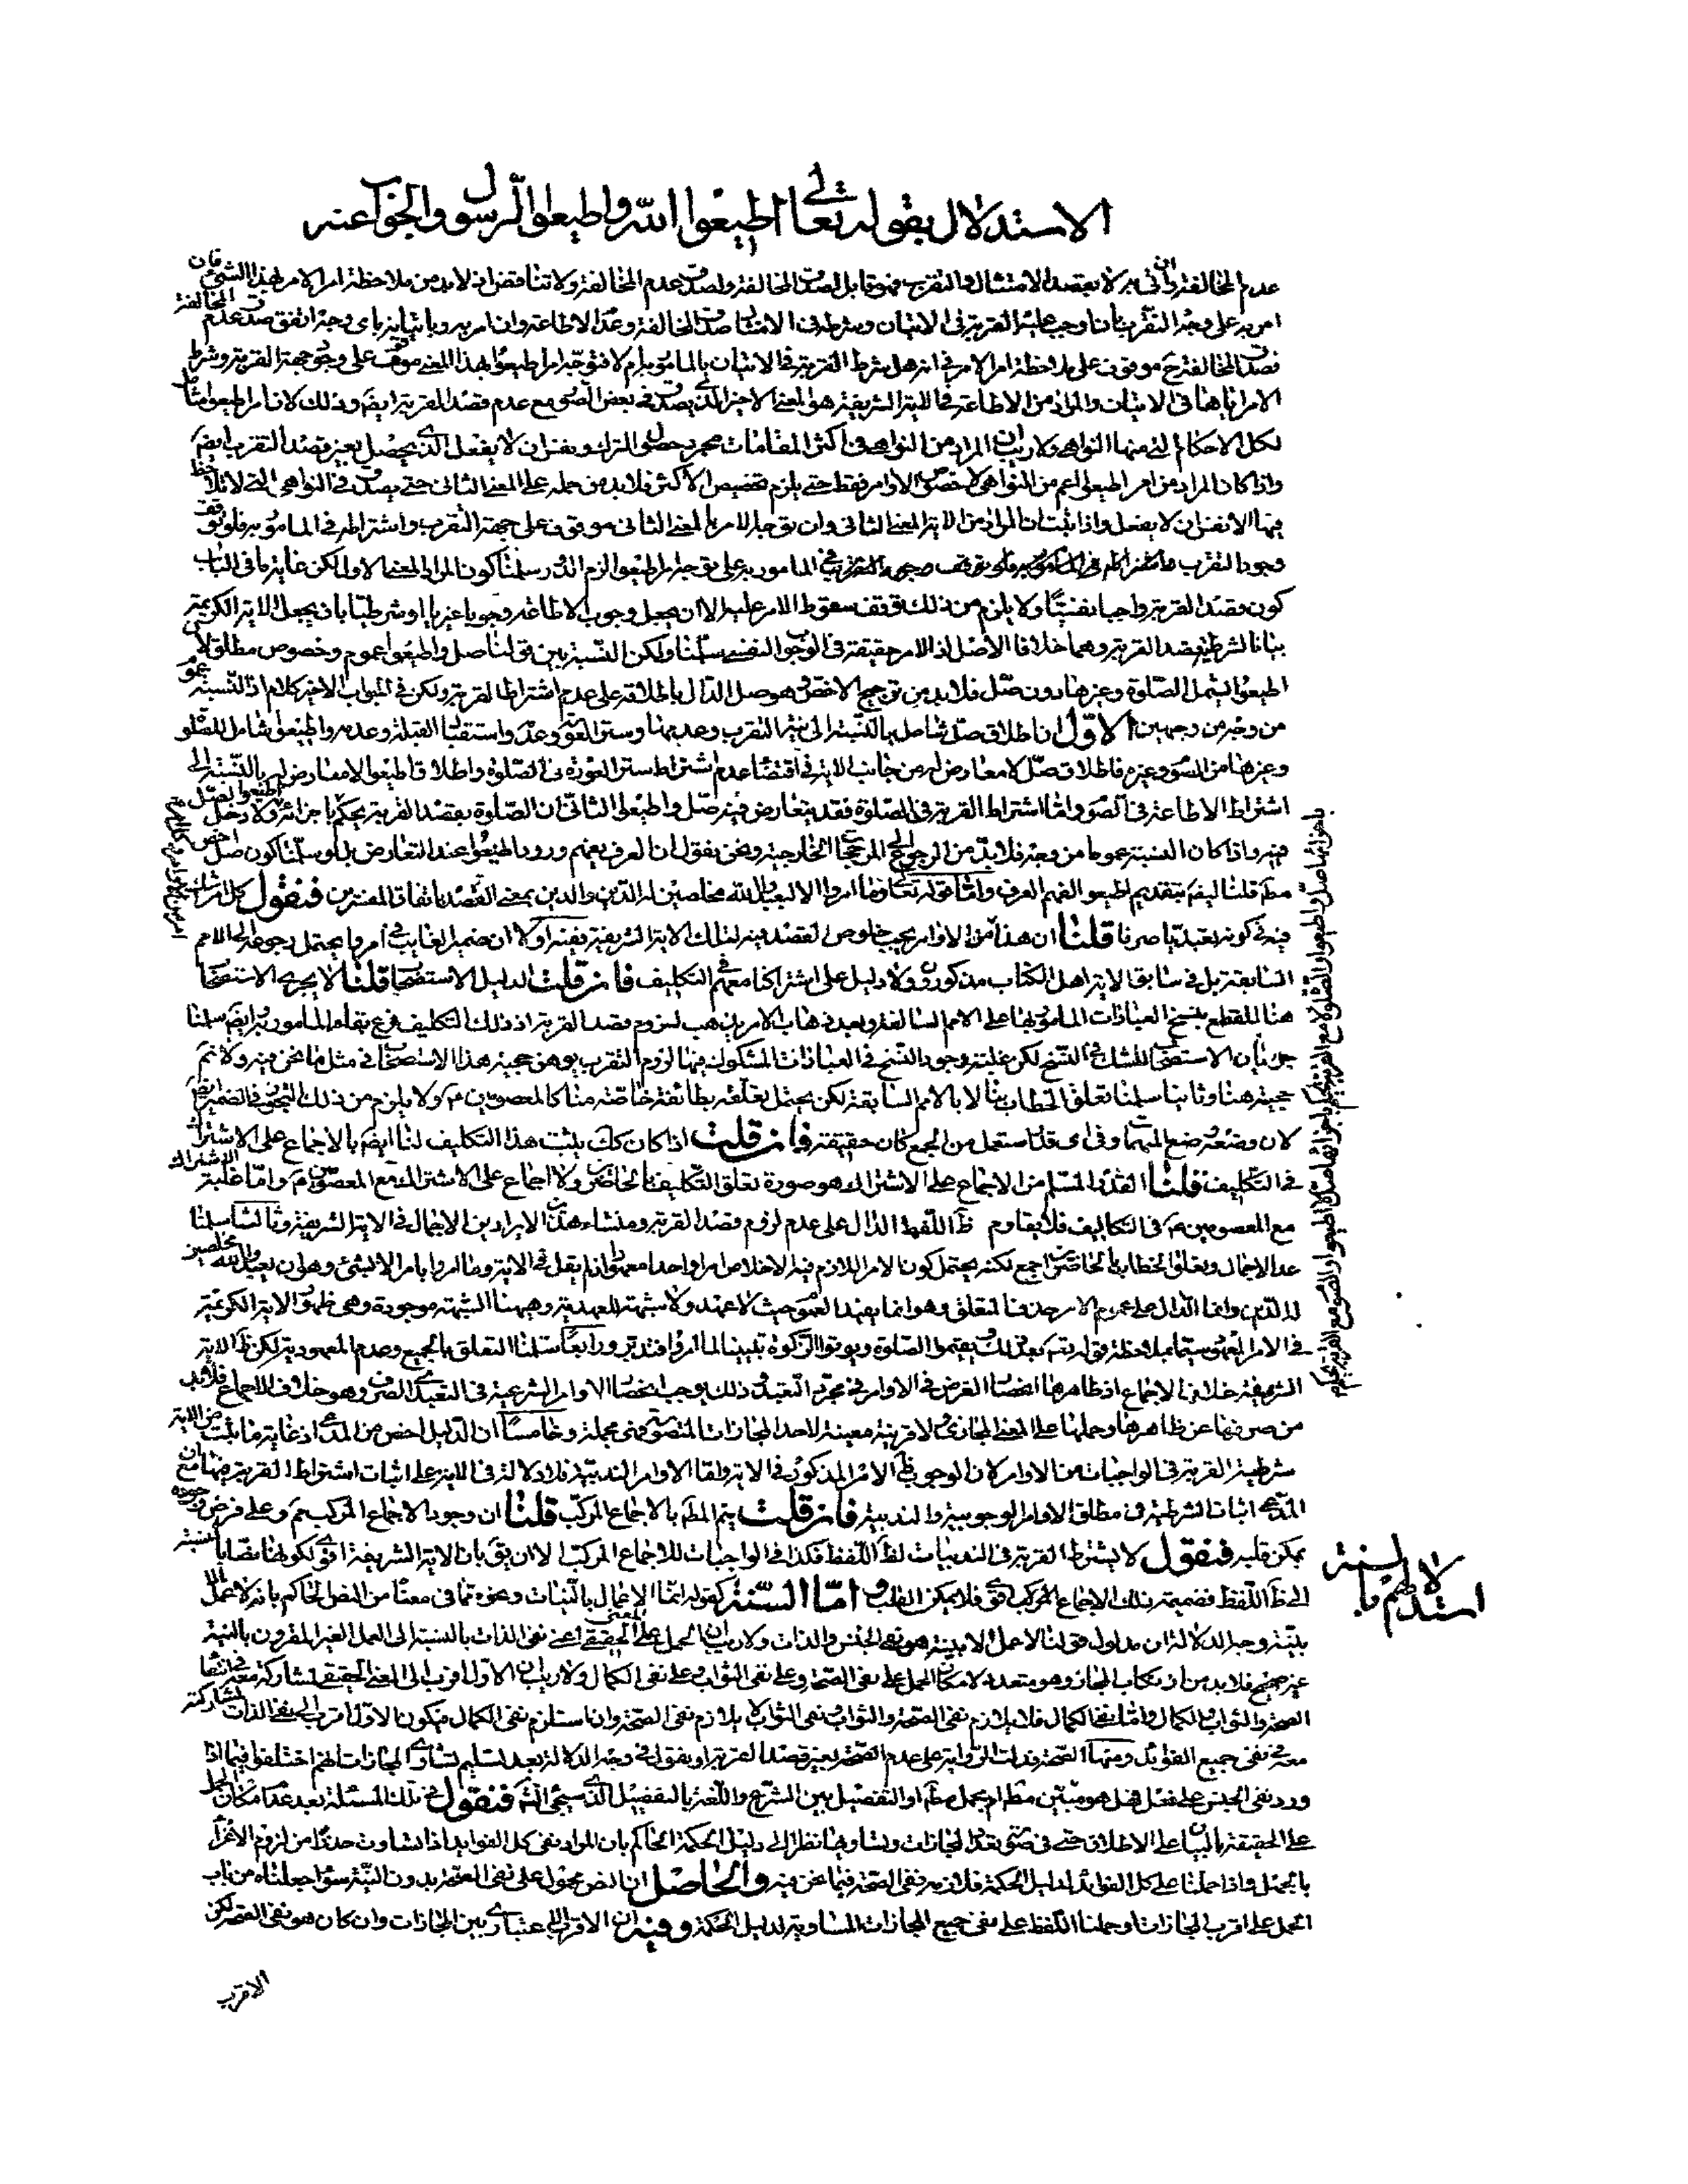 الاستدلال بقوله تعالى اطيعوا الله واطيعوا الرسول والجواب عنه
عدم المخالفة وان اتى به لا بقصد الامتثال والتقرب فهو قابل لصدق المخالفة ولصدق عدم المخالفة ولا تناقض اذ لابد من ملاحظة امر الامر بهذا الشئ فان
امر به على وجه التقرب بان اوجب عليه القربة في الاتيان وشرطه في الامتثال صدق المخالفة وعدم الاطاعة وان امر به وباتيانه باى وجه اتفق صدق عدم المخالفة
فصدق المخالفة ح موقوف على ملاحظة امر الامر في انه هل شرط القربة في الاتيان بالمامور به ام لا فتوجه امر اطيعوا بهذا المعنى موقوف على وجوب جهة القربة وشرط
الامر اياها في الاتيان والمراد من الاطاعة في الاية الشريفة هو المعنى الاخير الذى يصدق في بعض الصور مع عدم قصد القربة ايضا وذلك لان امر اطيعوا شامل
لكل الاحكام التى منها النواهى ولا ريب ان المراد من النواهى في اكثر المقامات مجرد حصول الترك ونفس ان لا يفعل الذى يحصل بغير قصد التقرب ايضا
واذا كان المراد من امر اطيعوا اعم من النواهى لا خصوص الاوامر فقط حتى يلزم تخصيص الاكثر فلابد من حمله على المعنى الثانى حتى يصدق في النواهى التى لا تلاحظ
فيها الا نفس ان لا يفعل واذا ثبت ان المراد من الاية المعنى الثانى وان توجه الامر بالمعنى الثانى موقوف على جهة التقرب واشتراطه في المامور به فلو توقف
وجود التقرب في المامور به على توجه امر اطيعوا لزم الدور سلمنا كون المراد المعنى الاول لكن غاية ما في الباب
كون قصد القربة واجبا نفسيا ولا يلزم من ذلك توقف سقوط الامر عليه الا ان يجعل وجوب الاطاعة وجوبا غيريا او شرطيا بان يجعل الاية الكريمة
بيانا لشرطية قصد القربة وهما خلاف الاصل اذ الامر حقيقة في الوجوب النفسى سلمنا ولكن النسبة بين قولنا صل واطيعوا عموم وخصوص مطلق لان
اطيعوا يشمل الصلوة وغيرها دون صل فلابد من ترجيح الاخص وهو صل الدال باطلاقه على عدم اشتراط القربة ولكن في الجواب الاخير كلام اذ النسبة عموم
من وجه من وجهين الاول ان اطلاق صل شامل بالنسبة الى نية التقرب وعدمها وستر العورة وعدمه واستقبال القبلة وعدمه واطيعوا شامل للصلوة
وغيرها من الصوم وغيره فاطلاق صل لا معارض له من جانب الاية في اقتضاء عدم اشتراط ستر العورة في الصلوة واطلاق اطيعوا لا معارض له بالنسبة الى
اشتراط الاطاعة في الصوم واما اشتراط القربة في الصلوة فقد يتعارض فيه صل واطيعوا الثانى ان الصلوة بقصد القربة يحكم باجزائه ولا دخل
فيه واذا كان النسبة عموما من وجه فلابد من الرجوع الى المرجحات الخارجية ونحن نقول ان العرف يفهم ورود اطيعوا عند التعارض بل لو سلمنا كون صل اخص
مط قلنا ايضا بتقديم اطيعوا لفهم العرف واما قوله تعالى وما امروا الا ليعبدوا الله مخلصين له الدين والدين بمعنى القصد باتفاق المفسرين فنقول كل ما شك
فيه في كونه تعبديا صرفا قلنا ان هذا من الاوامر يجب خلوص القصد فيه لتلك الاية الشريفة وفيه اولا ان ضمير الغايب في امروا يحتمل رجوعه الى الامم
السابقة بل في سابق الاية اهل الكتاب مذكورون ولا دليل على اشتراكنا معهم في التكليف فان قلت الدليل الاستصحاب قلنا لا يجرى الاستصحاب
هنا للقطع بنسخ العبادات المامور بها على الامم السالفة وبعد ذهاب الامر يذهب لزوم قصد القربة اذ ذلك التكليف فرع بقاء المامور به ايضا سلمنا
جريان الاستصحاب للشك في النسخ لكن غلبة وجود النسخ في العبادات المشكوك فيها لزوم التقرب يوهن حجية هذا الاستصحاب في مثل ما نحن فيه ولا نم
حجيته هنا وثانيا سلمنا تعلق الخطاب بنا لا بالامم السابقة لكن يحتمل تعلقه بطائفة خاصة منا كالمعصومين ع ولا يلزم من ذلك التجوز في الضمير ايضا
لان وضعه وضع المبهمات وفى اى قد استعمل من الجمع كان حقيقة فان قلت اذا كان كك يثبت هذا التكليف لنا ايضا بالاجماع على الاشتراك
في التكليف قلنا القدر المسلم من الاجماع على الاشتراك هو صورة تعلق التكليف بالحاضرين ولا اجماع على الاشتراك مع المعصومين ع واما غلبة الاشتراك
مع المعصومين ع في التكاليف فلا يقاوم ظ اللفظ الدال على عدم لزوم قصد القربة ومنشاء هذين الايرادين الاجمال في الاية الشريفة وثالثا سلمنا
عدم الاجمال وتعلق الخطاب بالحاضرين اجمع لكنه يحتمل كون الامر اللازم فيه الاخلاص امرا واحدا معهودا اذ لم يقل في الاية وما امروا بامر الا لشئ وهو ان يعبدوا الله مخلصين
له الدين وانما الدال على عموم الامر حذف المتعلق وهو انما يفيد العموم حيث لا عهد ولا شبهة للعهدية وهيهنا الشبهة موجودة وهى ظهور الاية الكريمة
في الامر المعهود سيما بملاحظة قوله تع بعد ذلك يقيموا الصلوة ويؤتوا الزكوة تبيينا لما امروا فتدبر ورابعا سلمنا التعلق بالجميع وعدم المعهودية لكن ظ الاية
الشريفة خلاف الاجماع اذ ظاهرها انحصار الغرض في الاوامر في مجرد التعبد وذلك يوجب انحصار الاوامر الشرعية في التعبدى الصرف وهو خلاف الاجماع فلابد
من صرفها عن ظاهرها وحملها على المعنى المجازى ولا قرينة معينة لاحد المجازات المتصورة فهى مجملة وخامسا ان الدليل اخص من المدعى اذ غاية ما يثبت من الاية
شرطية القربة في الواجبات من الاوامر لان الوجوب ظ الامر المذكور في الاية واما الاوامر الندبية فلا دلالة في الاية على اثبات اشتراط القربة فيها مع ان
المدعى اثبات الشرطية في مطلق الاوامر الوجوبية والندبية فان قلت يتم المط بالاجماع المركب قلنا ان وجود الاجماع المركب مم وعلى فرض وجوده
يمكن قلبه فنقول لا يشترط القربة في الندبيات لظ اللفظ فكذا في الواجبات للاجماع المركب الا ان يق بان الاية الشريفة اقوى لكونها نصا بالنسبة
الى ظ اللفظ فضميمة ذلك الاجماع المركب اقوى فلا يمكن القلب واما السنة كقوله انما الاعمال بالنيات ونحوه مما في معناه من النص الحاكم بانه لا عمل الا
بنية وجه الدلالة ان مدلول قولنا لا عمل الا بنية هو نفى الجنس والذات ولا ريب ان الحمل على المعنى الحقيقى اعنى نفى الذات بالنسبة الى العمل الغير المقرون بالنية
غير صحيح فلابد من ارتكاب المجاز وهو متعدد لامكان الحمل على نفى الصحة وعلى نفى الثواب وعلى نفى الكمال ولا ريب ان الاول اقرب الى المعنى الحقيقى لمشاركته معه في انتفاء
الصحة والثواب والكمال واما نفى الكمال فلا يلازم نفى الصحة والثواب ونفى الثواب لا يلازم نفى الصحة وان استلزم نفى الكمال فيكون الاول اقرب الى نفى الذات لمشاركته
معه في نفى جميع الفوائد ومنها الصحة فدلت الرواية على عدم الصحة بغير قصد القربة او نقول في وجه الدلالة بعد تسليم تساوى المجازات انهم اختلفوا فيما اذا
ورد نفى الجنس على فعل فهل هو مبين مطلقا ام مجمل مطلقا او التفصيل بين الشرع واللغة بالتفصيل الذى سيجئ انشاء الله فنقول في تلك المسئلة بعد عدم امكان الحمل
على الحقيقة بالبيان على الاطلاق حتى في صورة تعدد المجازات وتساويها نظرا الى دليل الحكمة الحاكم بان المراد نفى كل الفوايد اذا تساوت حذرا من لزوم الاغراء
بالجهل واذا حملنا على كل الفوائد لدليل الحكمة فلازمه نفى الصحة فيما نحن فيه والحاصل ان النص محمول على نفى الصحة بدون النية سواء جعلناه من باب
الحمل على اقرب المجازات او حملنا اللفظ على نفى جميع المجازات المتساوية لدليل الحكمة وفيه ان الاقرب الاعتبارى بين المجازات وان كان هو نفى الصحة لكن
الاقرب
استدلالهم بالسنة